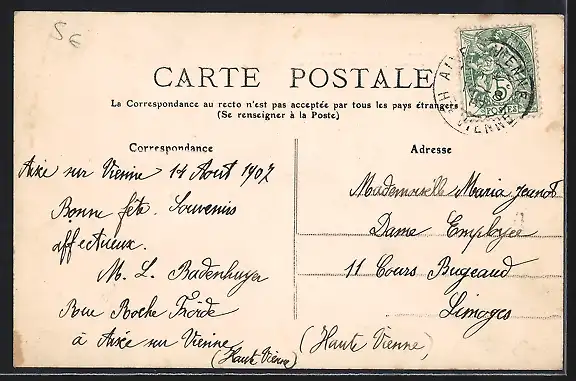 5€
CARTE POSTALE
La Correspondance au recto n'est pas acceptée par tous les pays étrangers
(Se renseigner à la Poste)
Correspondance
Aixe sur Vienne 14 Août 1907
Bonne fête. Souvenirs
affectueux.
M. L. Badenhuyer
Rue Roche Froide
à Aixe sur Vienne
(Haute Vienne)
Adresse
Mademoiselle Maria Jeanot
Dame Employée
11 Cours Bugeaud
Limoges
(Haute Vienne)
5
POSTES
VIENNE